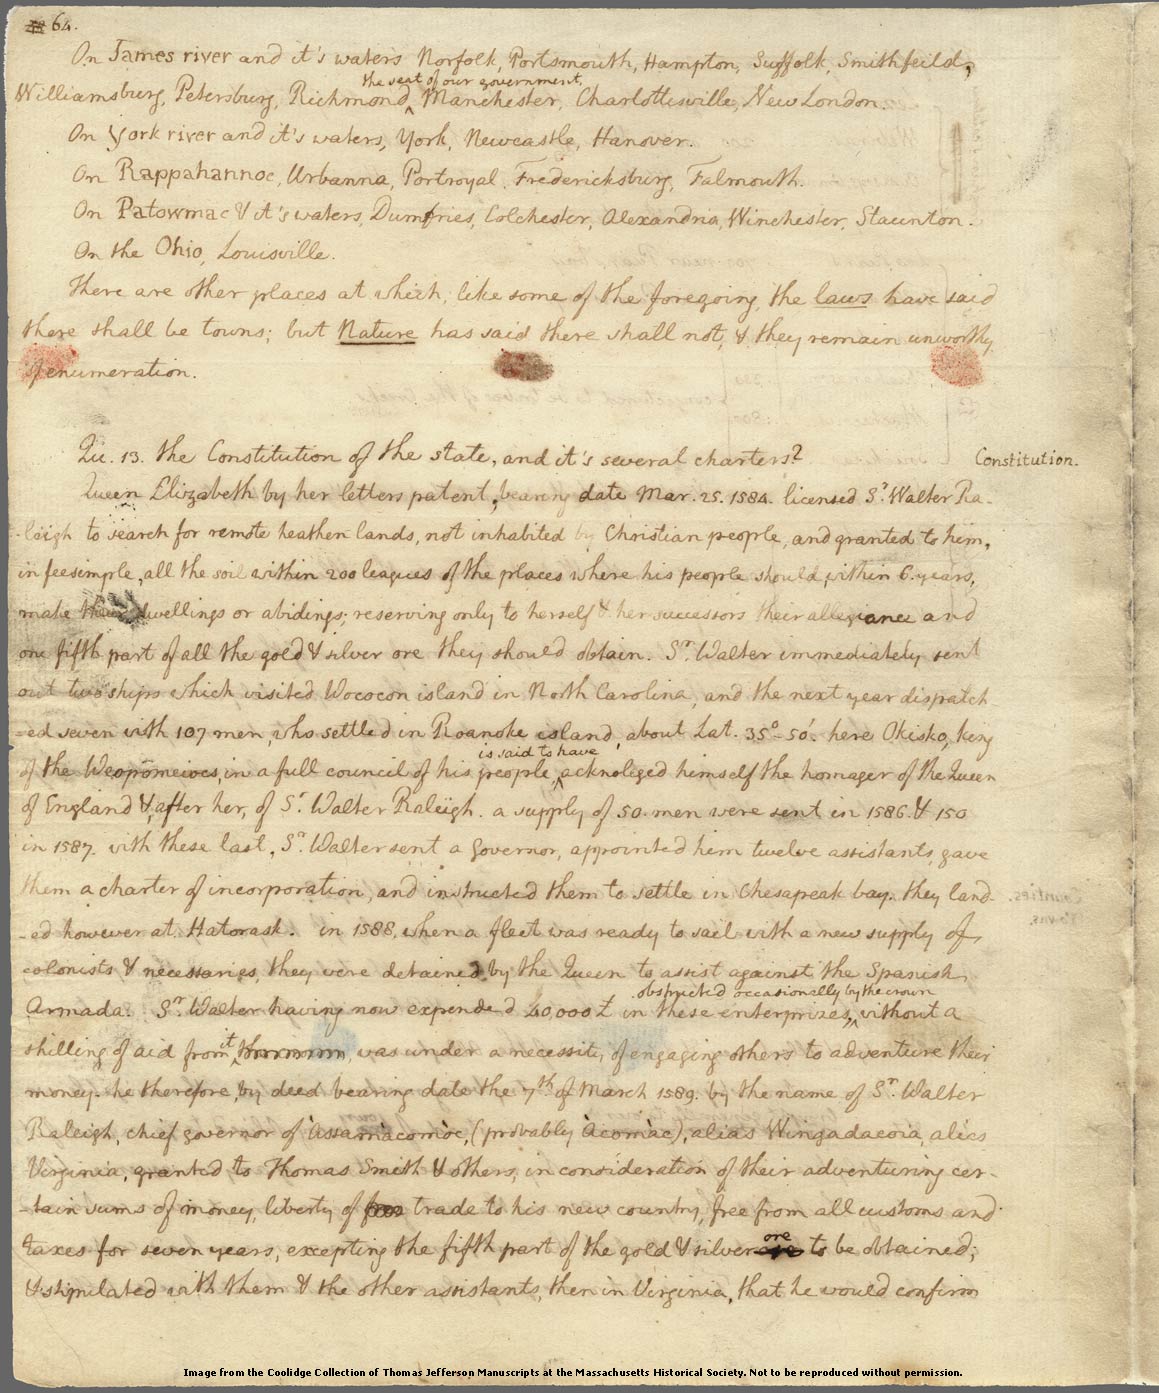 64.
On James river and it's waters Norfolk, Portsmouth, Hampton, Suffolk, Smithfeild,
the seat of our government,
Williamsburg, Petersburg, Richmond, Manchester, Charlottesville, New London.
On York river and it's waters, York, Newcastle, Hanover.
On Rappahannoc, Urbanna, Portroyal, Fredericksburg, Falmouth.
On Patowmac & it's waters, Dumfries, Colchester, Alexandria, Winchester, Staunton.
On the Ohio, Louisville.
There are other places at which, like some of the foregoing, the laws have said
there shall be towns; but Nature has said there shall not, & they remain unworthy
of enumeration.
Qu. 13. the Constitution of the state, and it's several charters?
Constitution.
Queen Elizabeth by her letters patent, bearing date Mar. 25. 1584. licensed Sr. Walter Ra-
-leigh to search for remote heathen lands, not inhabited by Christian people, and granted to him,
in fee simple, all the soil within 200 leagues of the places where his people should within 6. years,
make their dwellings or abidings; reserving only to herself & her successors their allegiance and
one fifth part of all the gold & silver ore they should obtain. Sr. Walter immediately sent
out two ships which visited Wococon island in North Carolina, and the next year dispatch-
-ed seven with 107 men, who settled in Roanoke island, about Lat. 35°-50'. here Okisko, king
is said to have
of the Weopomeiocs, in a full council of his people, acknoleged himself the homager of the Queen
of England &, after her, of Sr. Walter Raleigh. a supply of 50. men were sent in 1586. & 150
in 1587. with these last, Sr. Walter sent a Governor, appointed him twelve assistants, gave
them a charter of incorporation, and instructed them to settle in Chesapeak bay. they land-
-ed however at Hatorask. in 1588, when a fleet was ready to sail with a new supply of
colonists & necessaries, they were detained by the Queen to assist against the Spanish
obstructed occasionally by the crown
Armada. Sr. Walter having now expended 40,000£ in these enterprizes, without a
it
shilling of aid from was under a necessity of engaging others to adventure their
money. he therefore, by deed bearing date the 7th of March 1589. by the name of Sr. Walter
Raleigh, chief governor of Assamàcomòc, (probably Àcomàc), alias Wingadacoia, alias
Virginia, granted to Thomas Smith & others, in consideration of their adventuring cer-
-tain sums of money, liberty of trade to his new country, free from all customs and
ore
taxes for seven years, excepting the fifth part of the gold & silver to be obtained;
& stipulated with them & the other assistants, then in Virginia, that he would confirm
Image from the Coolidge Collection of Thomas Jefferson Manuscripts at the Massachusetts Historical Society. Not to be reproduced without permission.